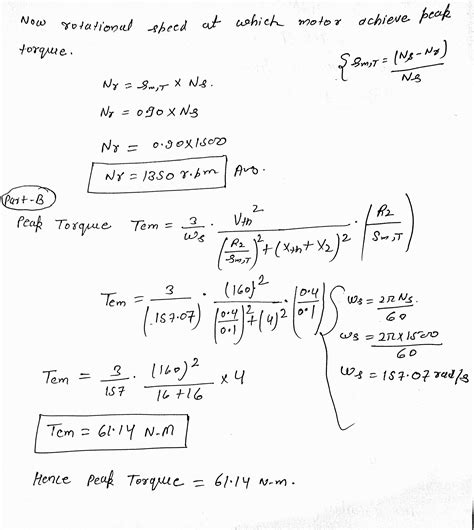 Now rotational speed at which motor achieve peak
torque.
{ Sm,T = (Ns - Nr) / Ns
Nr = Sm,T × Ns.
Nr = 0.90 × Ns
Nr = 0.90 × 1500
Nr = 1350 r.pm Ans.
Part-B
Peak Torque Tem = 3/ωs · Vth² / ((R2/Sm,T)² + (Xth + X2)²) · (R2/Sm,T)
Tem = 3/(157.07) · (160)² / ((0.4/0.1)² + (4)²) · (0.4/0.1)
ωs = 2πNs/60
ωs = 2π×1500/60
ωs = 157.07 rad/s
Tem = 3/157 · (160)²/(16+16) × 4
Tem = 61.14 N-M
Hence Peak Torque = 61.14 N-m.